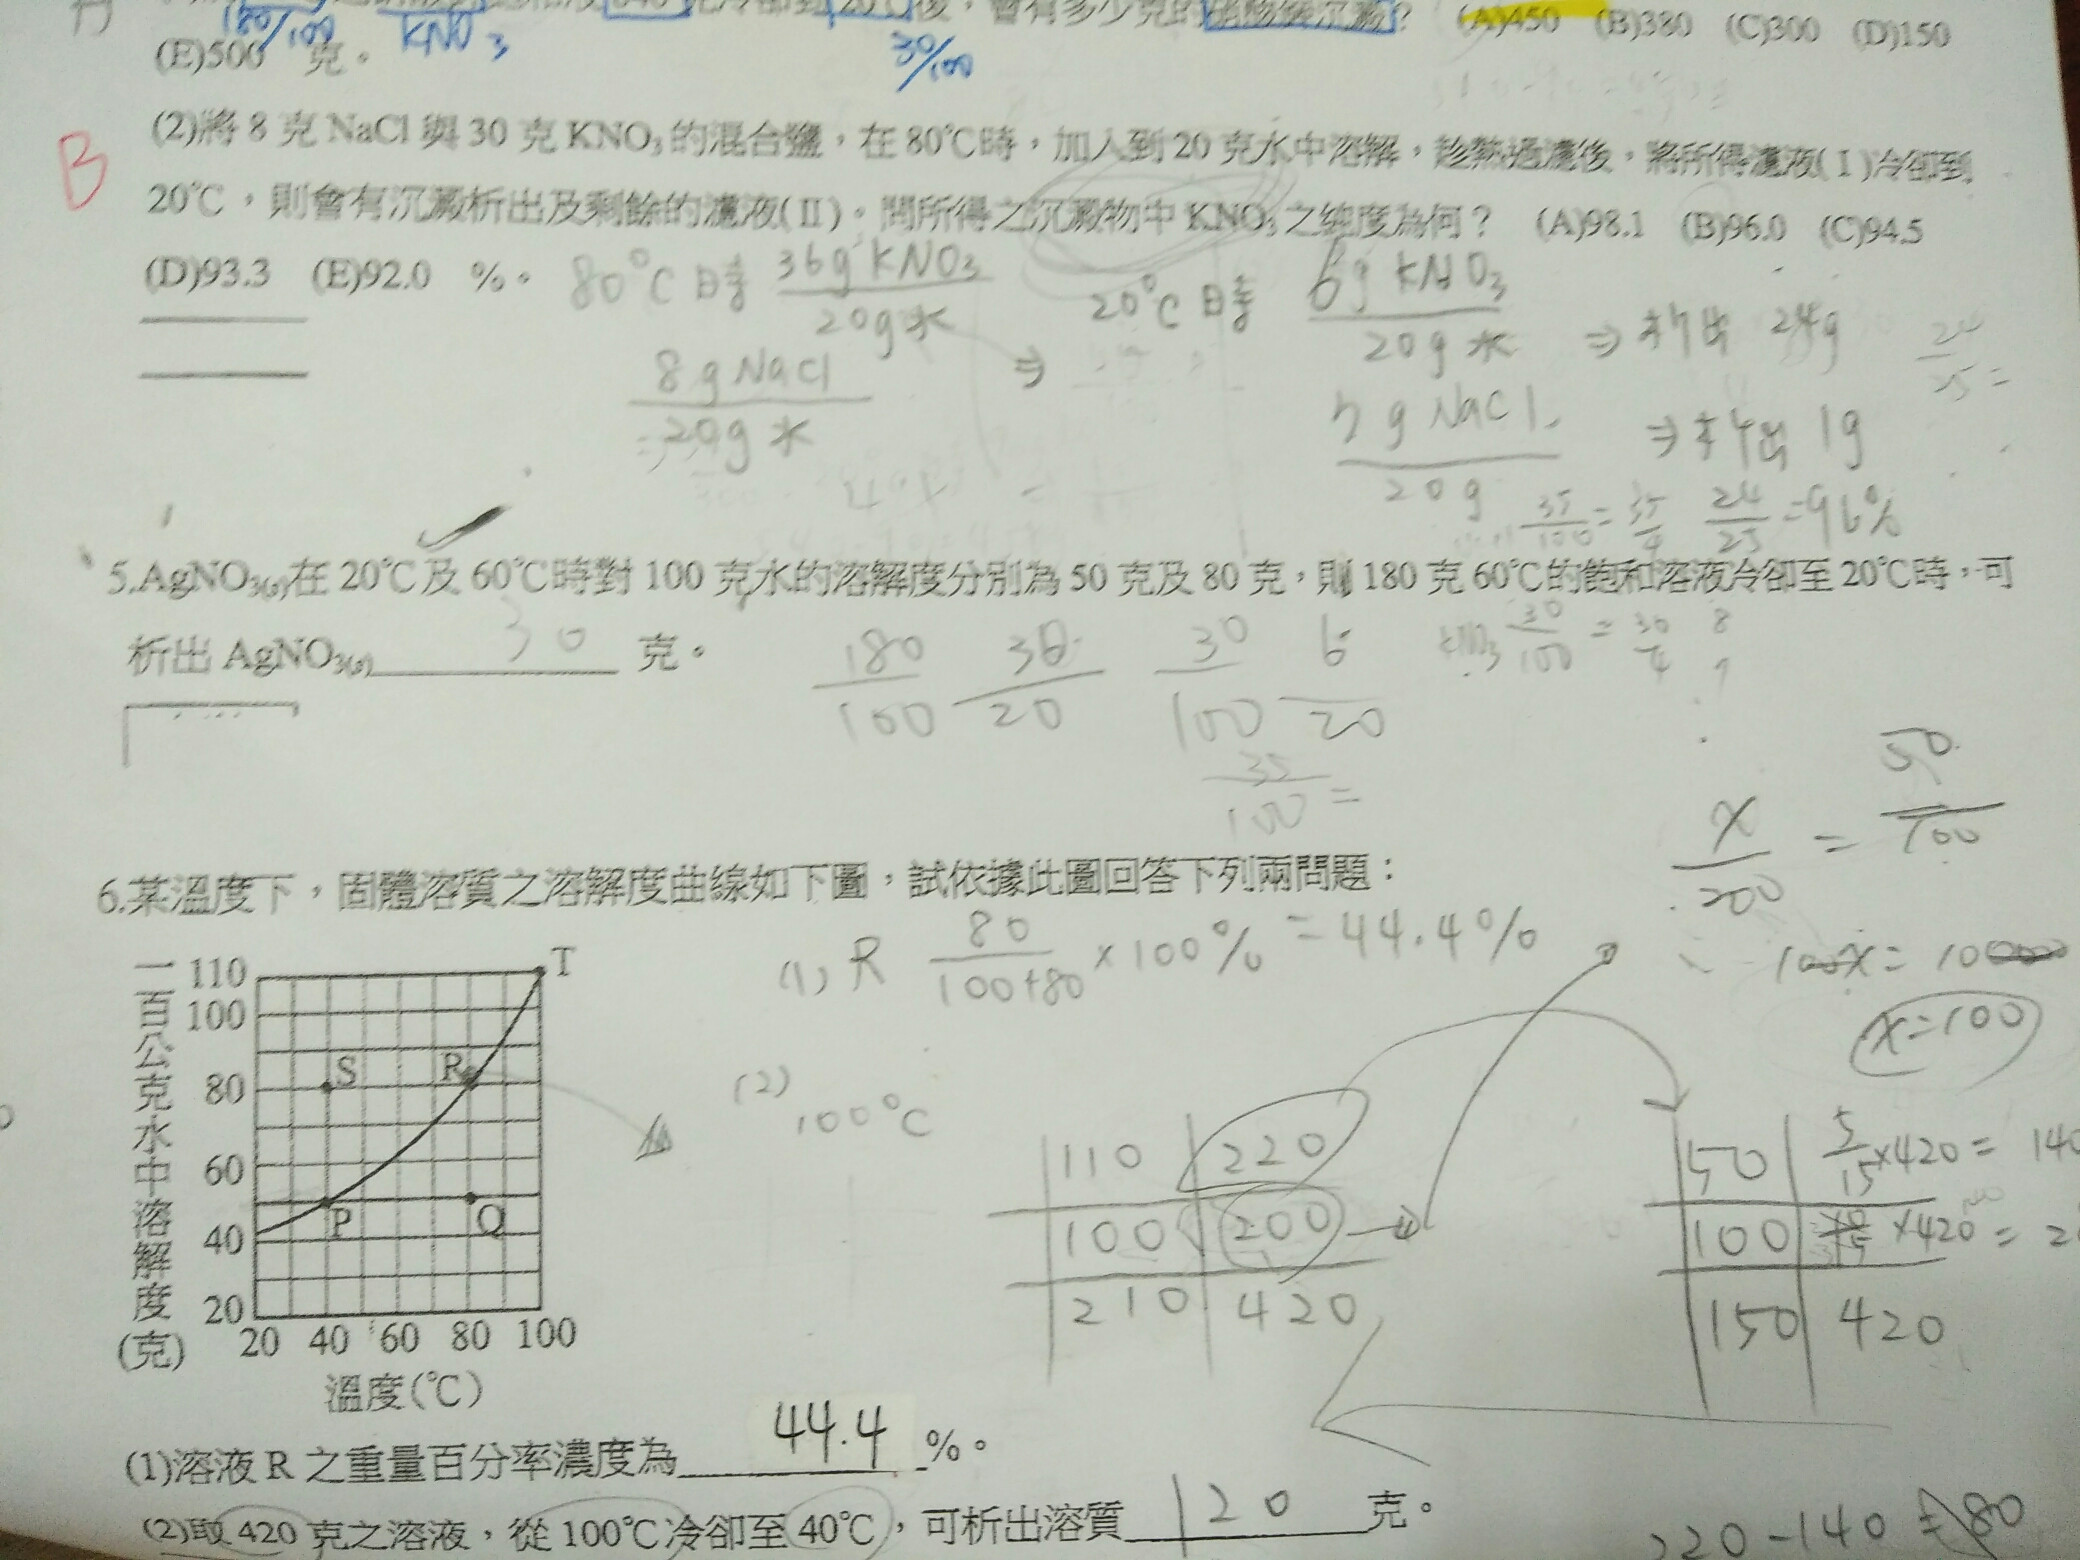 180/100 KNO3 30/100
會有多少克的硝酸鉀沉澱？ (A)450 (B)380 (C)300 (D)150
(E)500 克。
B
(2)將 8 克 NaCl 與 30 克 KNO3 的混合鹽，在 80℃時，加入到 20 克水中溶解，趁熱過濾後，將所得濾液(Ⅰ)冷卻到
20℃，則會有沉澱析出及剩餘的濾液(Ⅱ)。問所得之沉澱物中 KNO3 之純度為何？ (A)98.1 (B)96.0 (C)94.5
(D)93.3 (E)92.0 %。
80°C時 36g KNO3 / 20g水
20°C時 6g KNO3 / 20g水 ⇒ 析出 24g
24/25 =
8g NaCl / 20g水 ⇒
7g NaCl / 20g ⇒ 析出 1g
35/100 = 35/4 24/25 = 96%
5.AgNO3(s)在 20℃及 60℃時對 100 克水的溶解度分別為 50 克及 80 克，則 180 克 60℃的飽和溶液冷卻至 20℃時，可
析出 AgNO3(s) 30 克。
180/100 36/20 30/100 6/20
30/100 = 30/4
35/100 =
x/200 = 50/100
x=100
6.某溫度下，固體溶質之溶解度曲線如下圖，試依據此圖回答下列兩問題：
(1) R 80/(100+80) ×100% = 44.4%
(2) 100°C
110 220
100 200
210 420
50 5/15×420 = 140
100 ×420 =
150 420
一百公克水中溶解度(克)
110
100
80
60
40
20
T
S
R
P
Q
20 40 60 80 100
溫度(℃)
(1)溶液 R 之重量百分率濃度為 44.4 %。
(2)取 420 克之溶液，從 100℃冷卻至 40℃，可析出溶質 120 克。
220-140 = 80